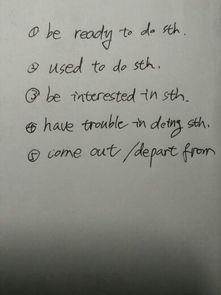 ① be ready to do sth.
② used to do sth.
③ be interested in sth.
④ have trouble in doing sth.
⑤ come out /depart from